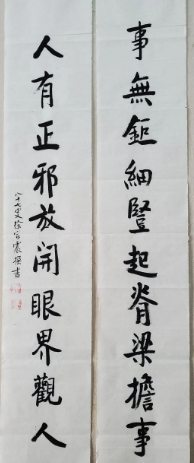 事無鉅細豎起脊梁擔事
人有正邪放開眼界觀人
八十七叟徐
書